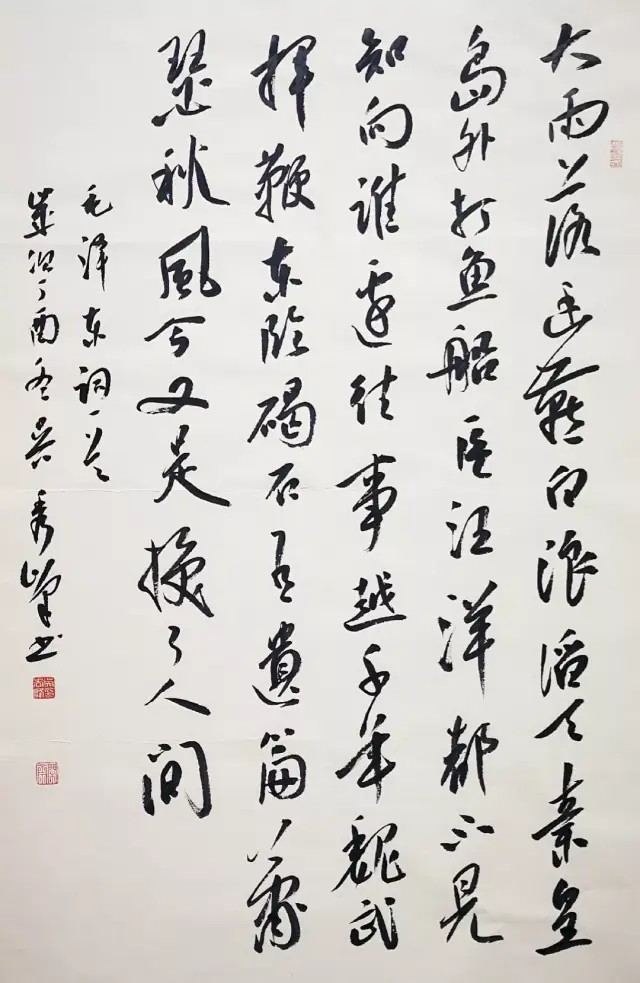 大雨落幽燕白浪滔天秦皇
島外打鱼船一片汪洋都不見
知向谁邊往事越千年魏武
揮鞭东临碣石有遺篇萧
瑟秋風今又是換了人间
毛泽东词一首
歲丁酉冬吴秀峰书